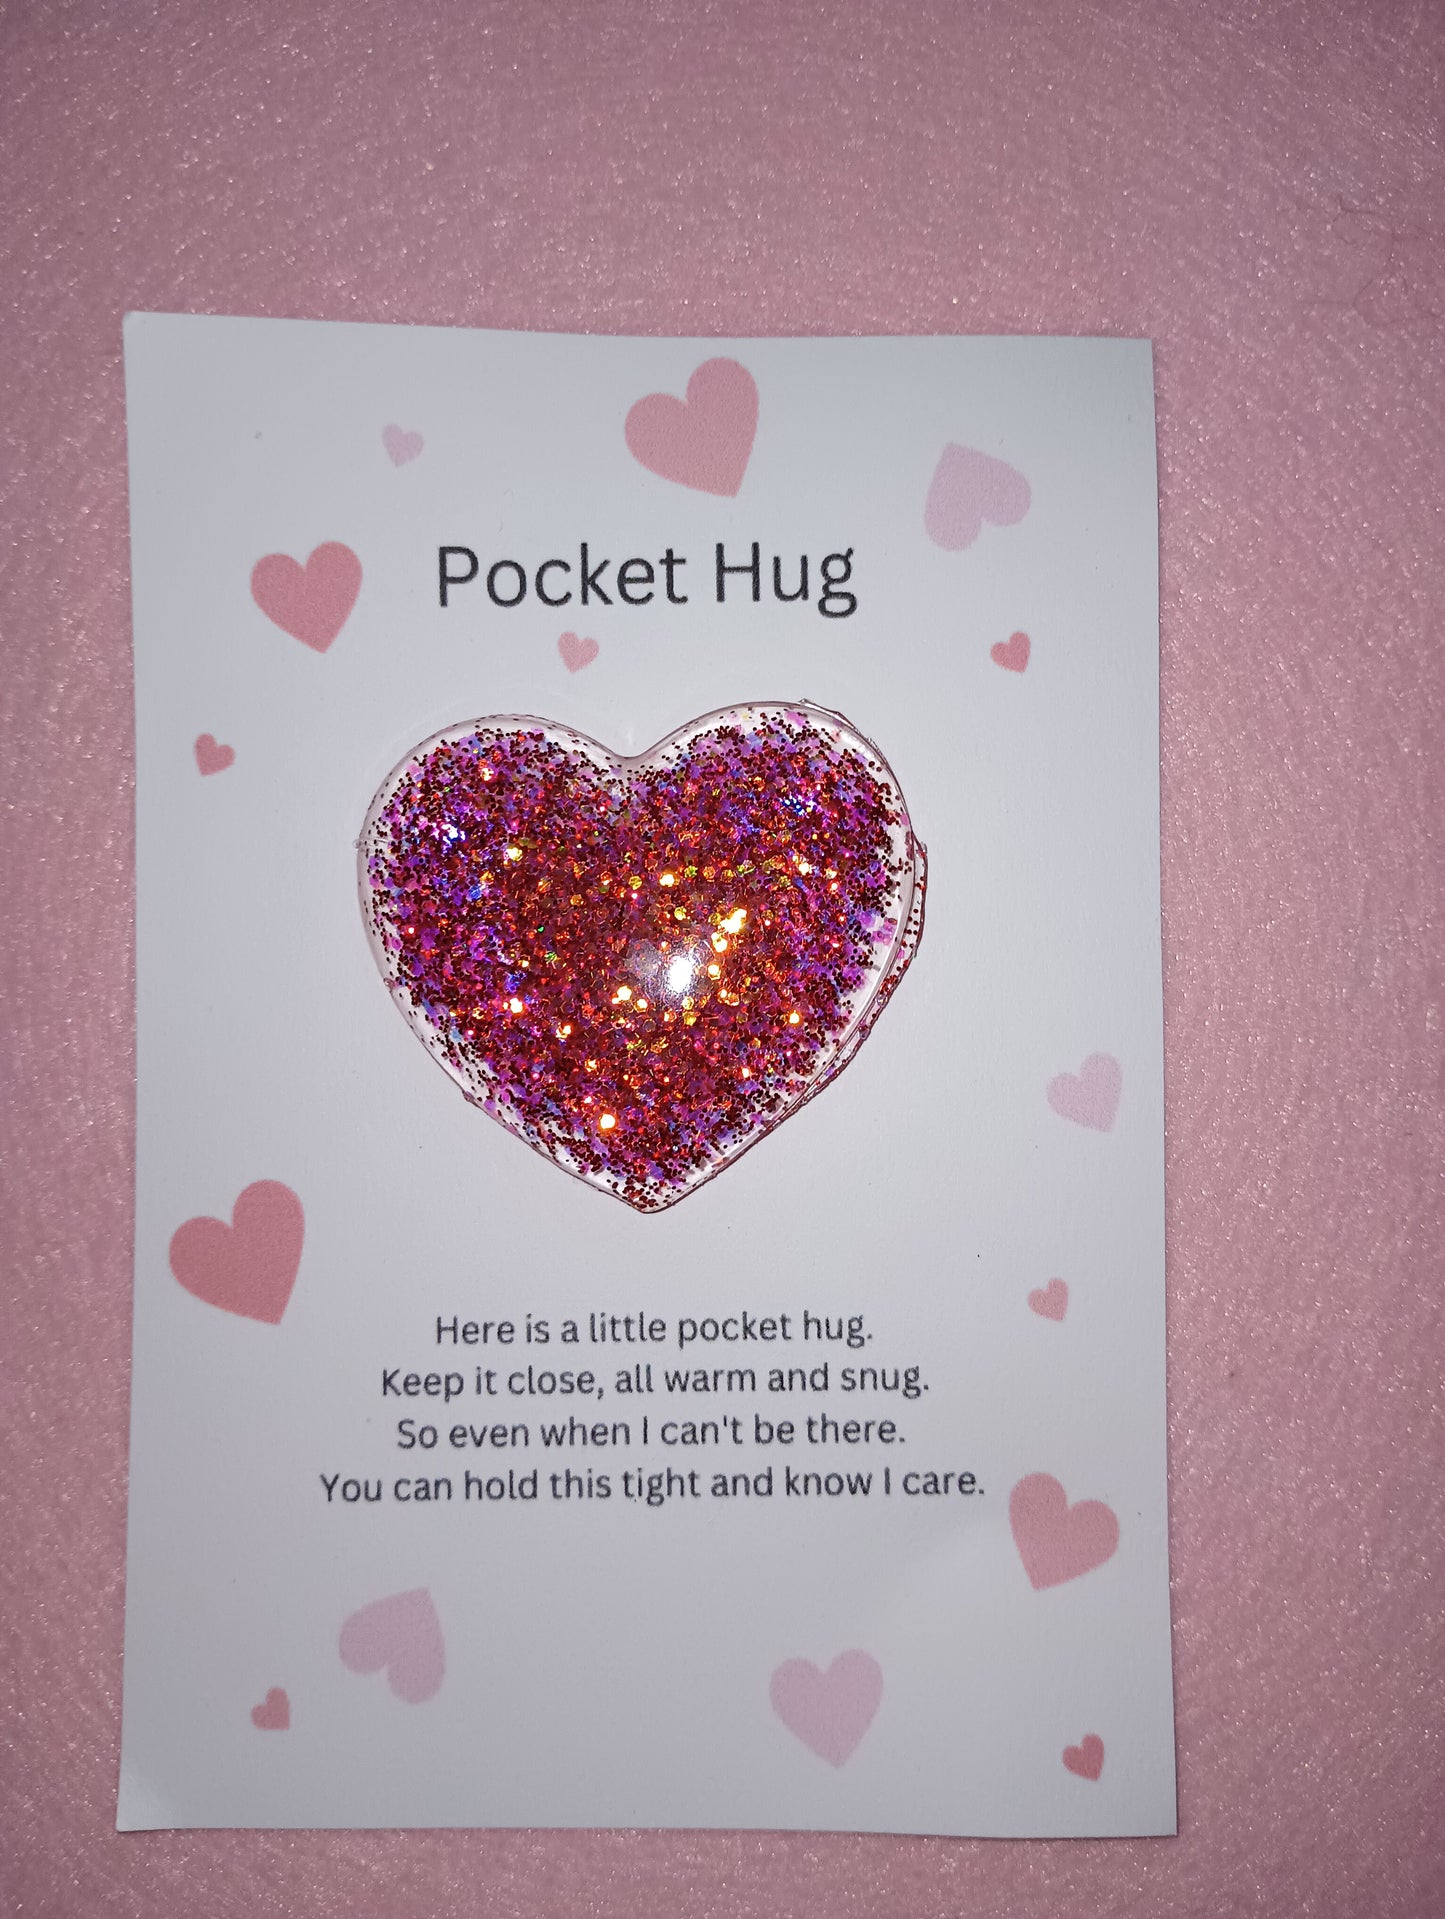 Pocket Hug
Here is a little pocket hug.
Keep it close, all warm and snug.
So even when I can't be there.
You can hold this tight and know I care.